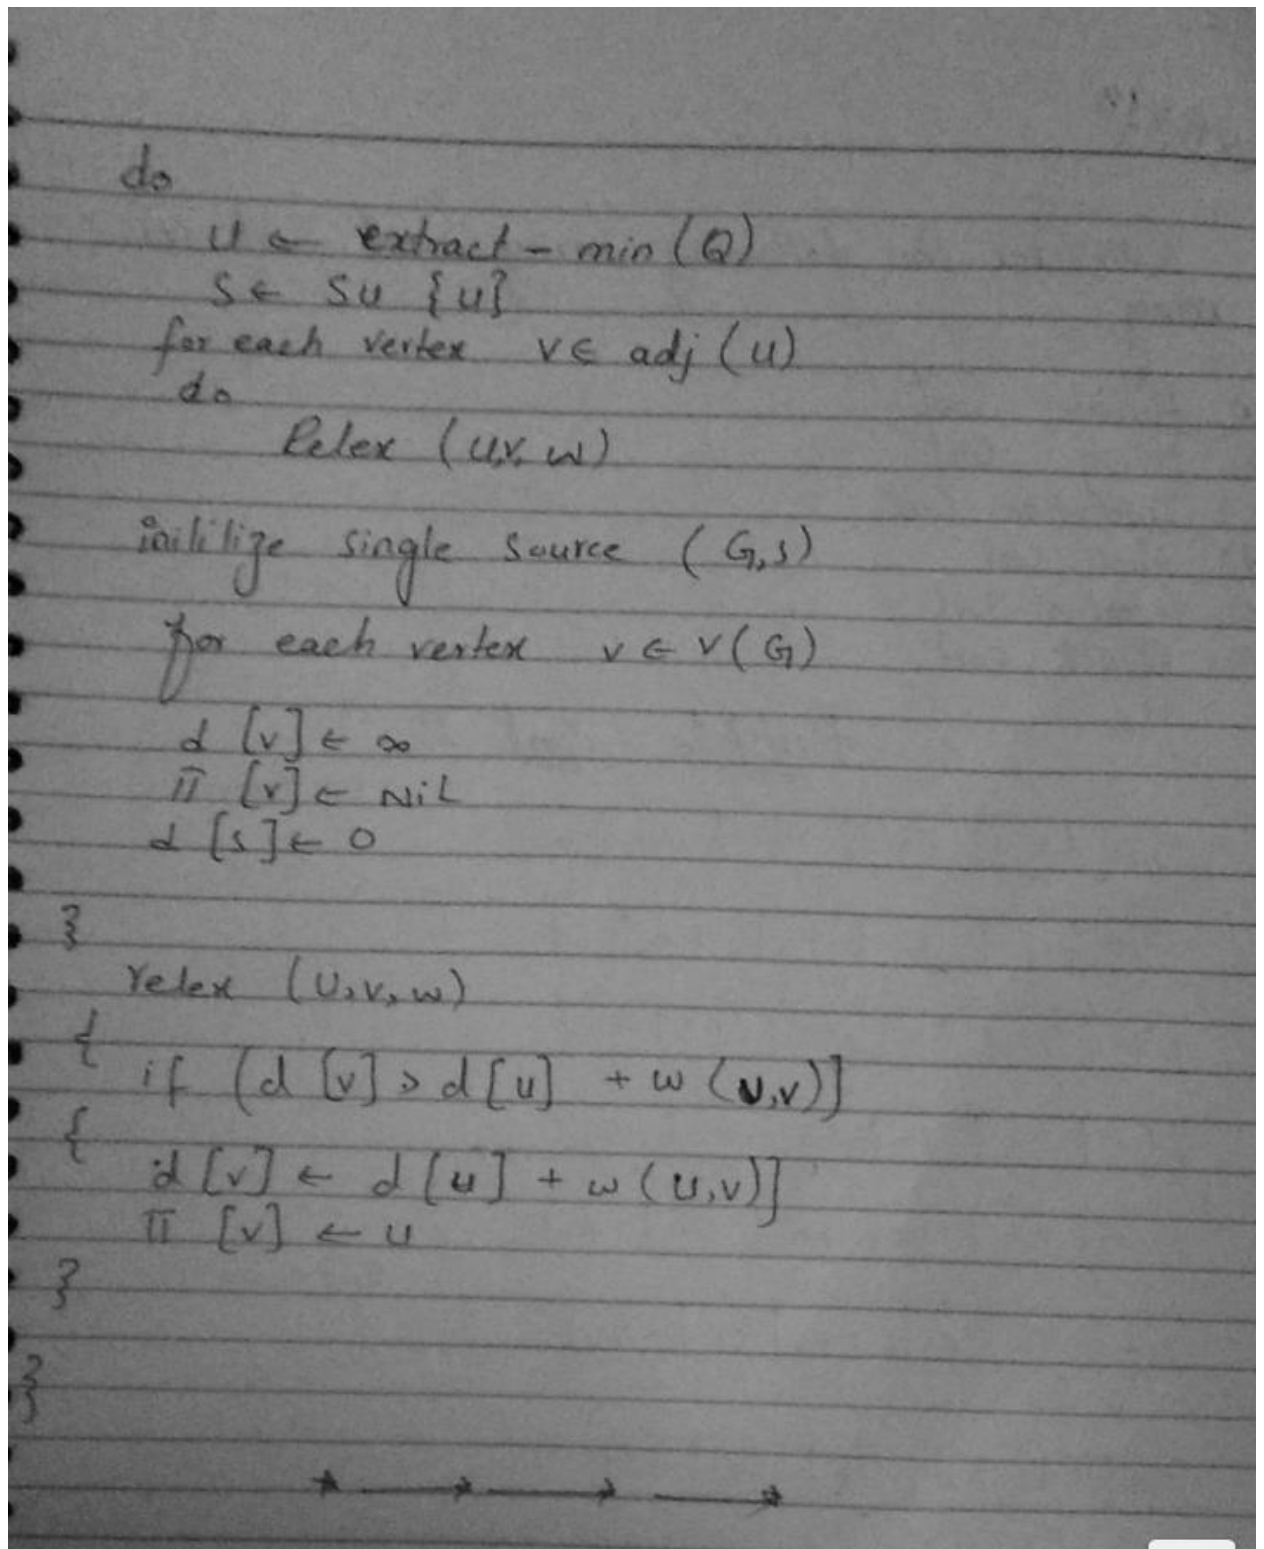 do
u ← extract - min (Q)
S ← S ∪ {u}
for each vertex v ∈ adj (u)
do
Relex (u,v, w)
initilize single source (G,s)
for each vertex v ∈ v(G)
d [v] ← ∞
π [v] ← NiL
d [s] ← 0
}
relex (U,v,w)
{
if (d [v] > d[u] + w (u,v)]
{
d [v] ← d [u] + w (u,v)]
π [v] ← u
}
}